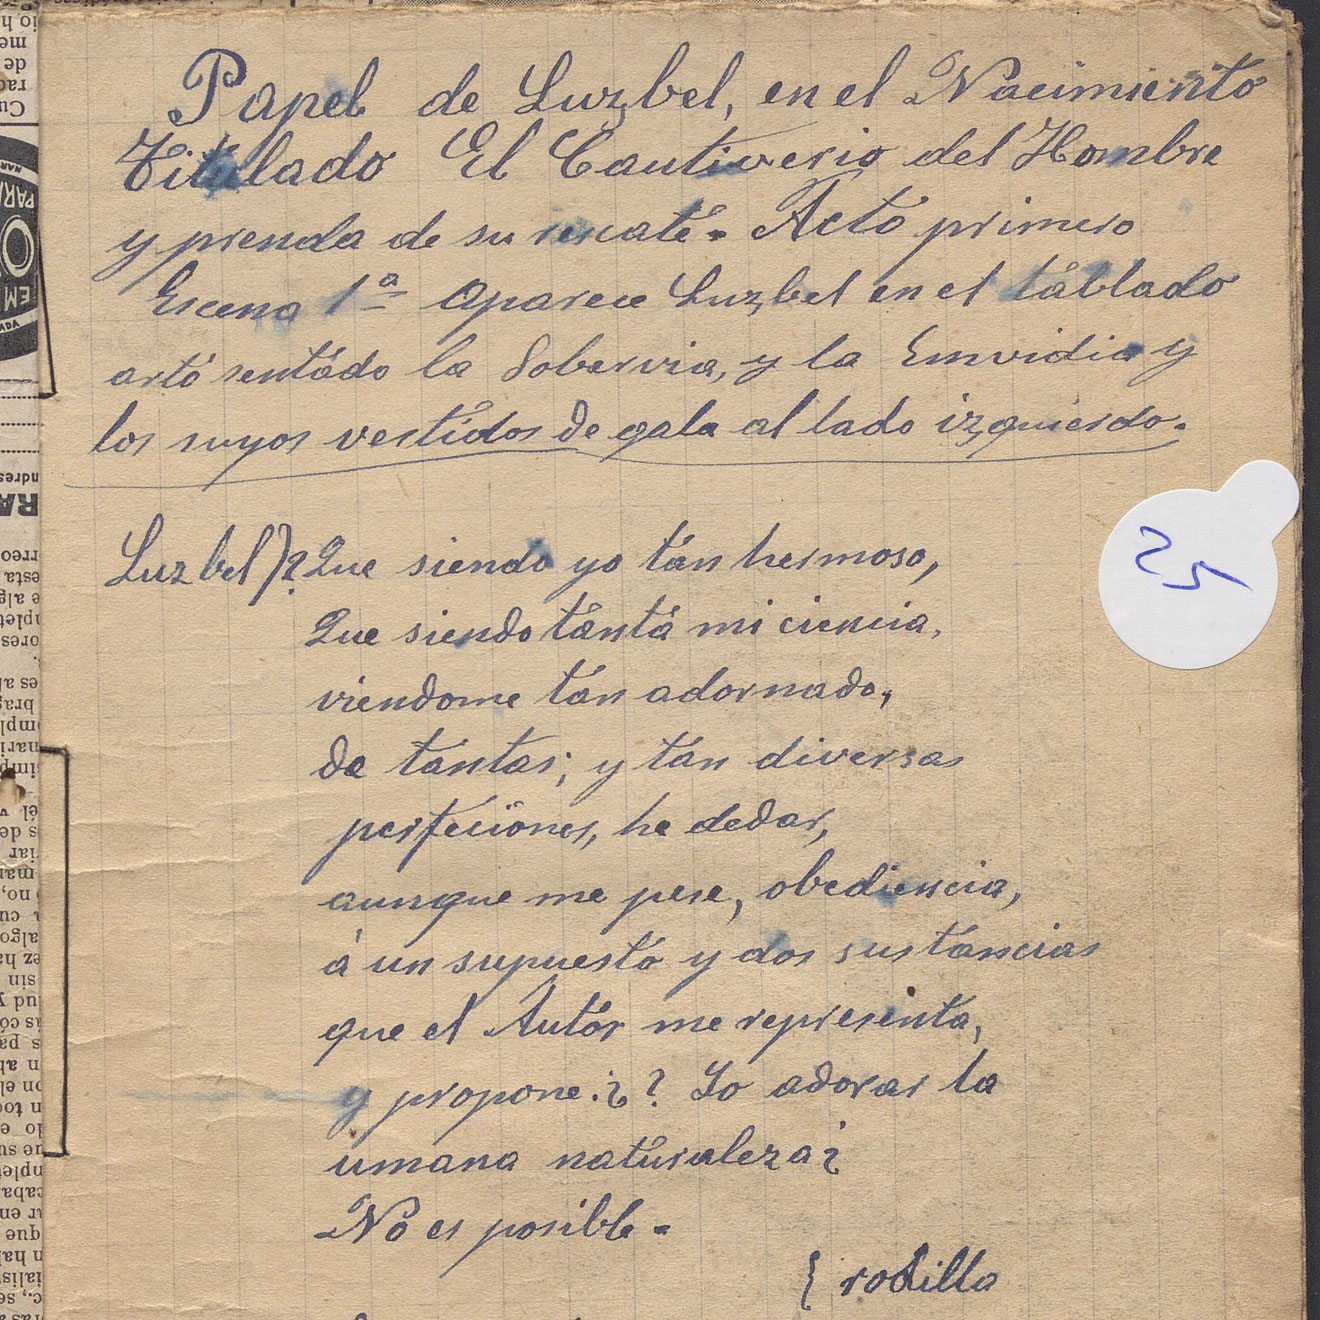 Papel de Luzbel, en el Nacimiento
Titulado El Cautiverio del Hombre
y prenda de su rescate = Acto primero
Escena 1ª Aparece Luzbel en el tablado
arto sentado la Sobervia, y la Emvidia y
los suyos vestidos de gala al lado izquierdo.
Luzbel)¿Que siendo yo tan hermoso,
Que siendo tanta mi ciencia,
viendome tan adornado,
de tantas; y tan diversas
perfeciones, he dedar,
aunque me pese, obediencia,
á un supuesto y dos sustancias
que el Autor me representa,
y propone.¿? Yo adorar la
umana naturaleza¿
No es posible =
{ rodilla
25